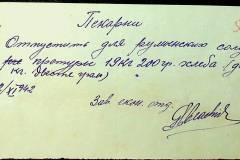 Пекарни
Отпустите для румынских сол
претуры 19 кг 200 гр. хлеба (д
кг. двести грам)
/XI 942
Зав. скл. отд.